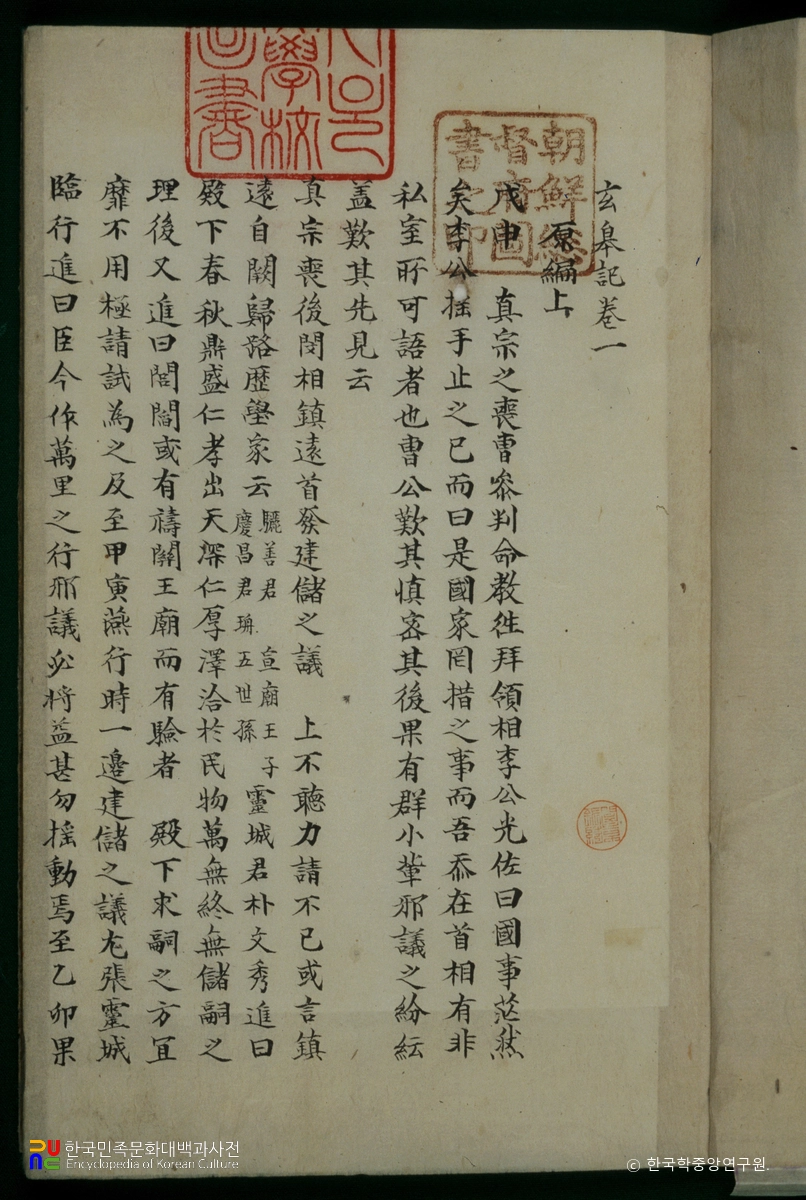 玄皐記卷一
原編上
戊申 真宗之喪曹叅判命敎徃拜領相李公光佐曰國事茫然
矣李公搖手止之已而曰是國家罔措之事而吾忝在首相有非
私室所可語者也曺公歎其愼密其後果有群小輩邪議之紛紜
盖歎其先見云
真宗喪後閔相鎮遠首發建儲之議 上不聽力請不已或言鎮
遠自闕歸路歷壆家云驪善君 宣廟王子
慶昌君珘五世孫靈城君朴文秀進曰
殿下春秋鼎盛仁孝出天深仁厚澤洽於民物萬無終無儲嗣之
理後又進曰閭閻或有禱關王廟而有驗者 殿下求嗣之方宜
靡不用極請試為之及至甲寅燕行時一邊建儲之議尤張靈城
臨行進曰臣今作萬里之行邪議必將益甚勿搖動焉至乙卯果
朝鮮總
督府圖
書之印
學校
圖書
한국민족문화대백과사전
Encyclopedia of Korean Culture
ⓒ 한국학중앙연구원